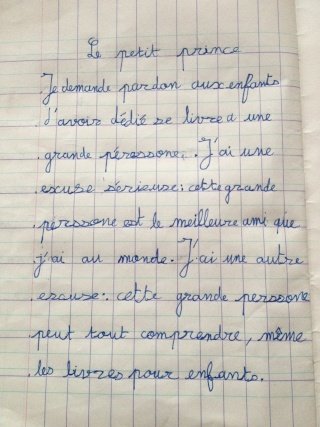 Le petit prince
Je demande pardon aux enfants
d'avoir dédié se livre a une
grande pérssone. J'ai une
excuse sérieuse : cette grande
pérssone est le meilleure ami que
j'ai au monde. J'ai une autre
excuse : cette grande perssone
peut tout comprendre, même
les livres pour enfants.